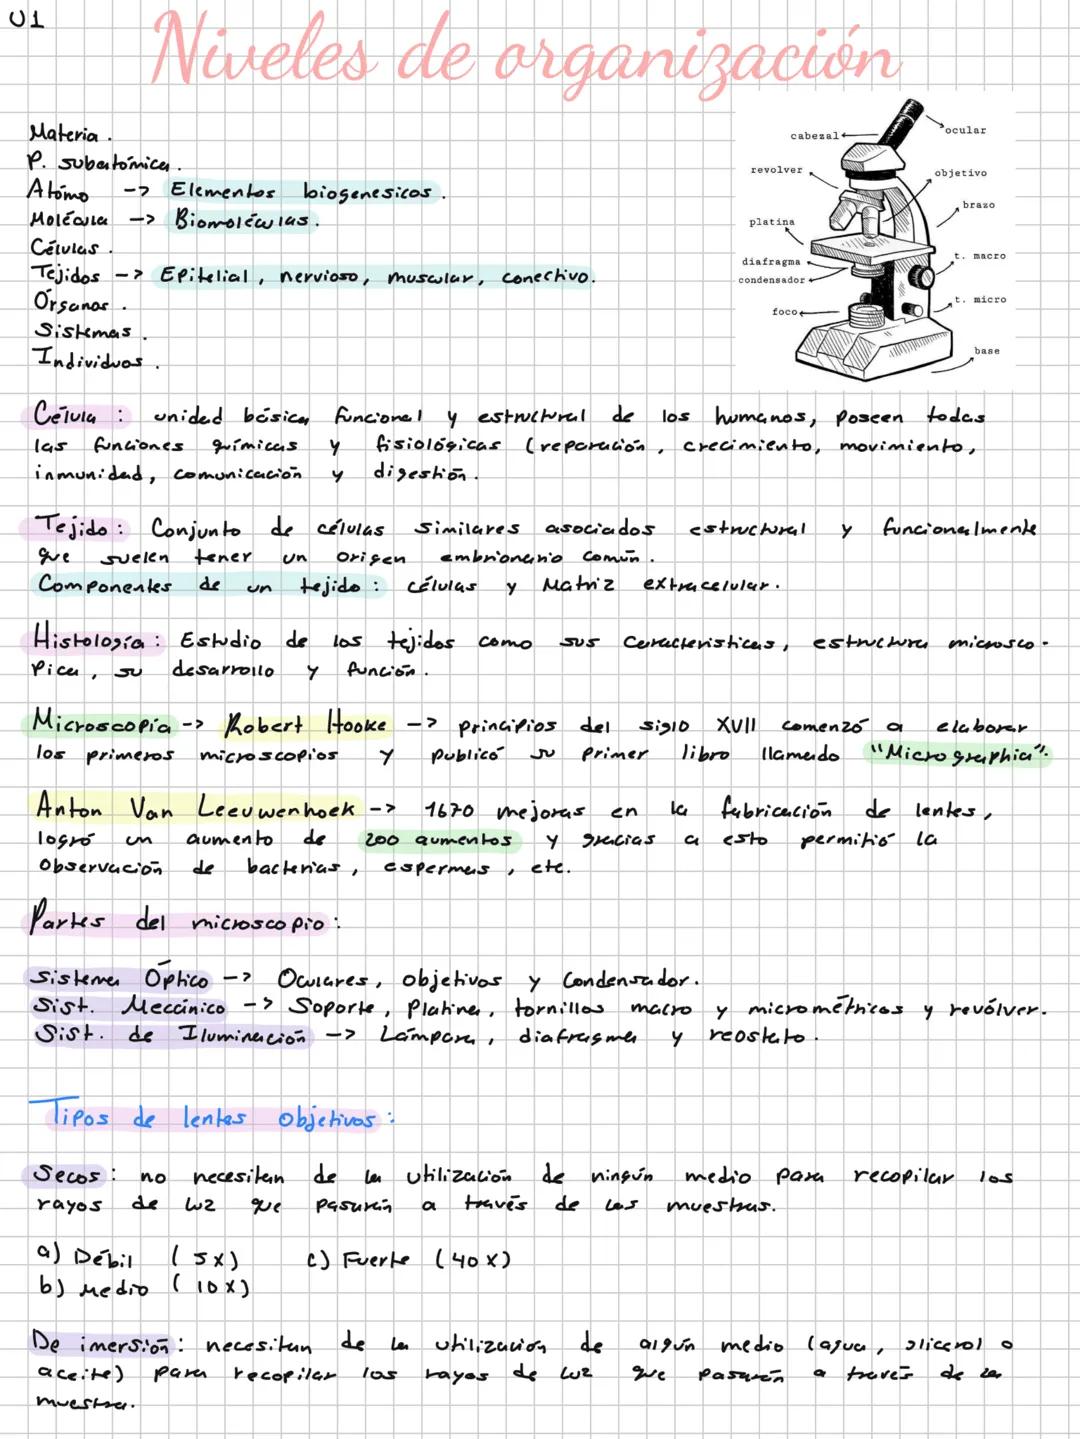 U1
Niveles de organización
Materia.
P. subatómica.
Atómo -> Elementos biogenesicos.
Molécula -> Biomoléculas.
Células.
Tejidos -> Epitelial, nervioso, muscular, conectivo.
Órganos.
Sistemas.
Individuos.
cabezal
ocular
revolver
objetivo
brazo
platina
diafragma
t. macro
condensador
t. micro
foco
base
Célula: unidad básica funcional y estructural de los humanos, poseen todas
las funciones químicas y fisiológicas (reparación, crecimiento, movimiento,
inmunidad, comunicación y digestión.
Tejido: Conjunto de células similares asociados estructural y funcionalmente
que suelen tener un origen embrionario común.
Componentes de un tejido: células y Matriz extracelular.
Histología: Estudio de los tejidos como sus características, estructura microsco-
pica, su desarrollo y función.
Microscopía -> Robert Hooke -> principios del siglo XVII comenzó a elaborar
los primeros microscopios y publicó su primer libro llamado "Micrographia".
Anton Van Leeuwenhoek -> 1670 mejoras en la fabricación de lentes,
logró un aumento de 200 aumentos y gracias a esto permitió la
Observación de bacterias, espermas, etc.
Partes del microscopio:
Sistema Óptico -> Oculares, objetivos y Condensador.
Sist. Mecánico -> Soporte, Platina, tornillos macro y micrométricos y revólver.
Sist. de Iluminación -> Lámpara, diafragma y reostato.
Tipos de lentes objetivos:
Secos: no necesitan de la utilización de ningún medio para recopilar los
rayos de luz que pasarán a través de las muestras.
a) Débil (5x) c) Fuerte (40x)
b) Medio (10x)
De imersión: necesitan de la utilización de algún medio (agua, glicerol o
aceite) para recopilar los rayos de luz que pasarán a través de la
muestra.